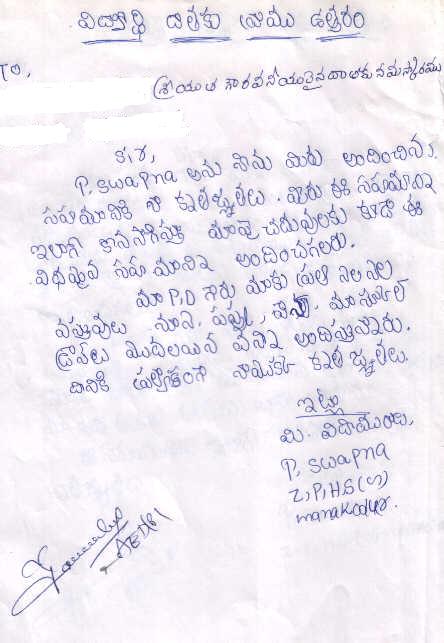 విద్యార్థి దాతకు వ్రాయు ఉత్తరం
TO,
శ్రీయుత గౌరవనీయులైన దాతకు నమస్కారము
సార్,
P. swapna అను నేను మీరు అందించిన
సహాయానికి నా కృతజ్ఞతలు. మీరు ఈ సహాయాన్ని
ఇలాగే కొనసాగిస్తూ మా పై చదువులకు కూడా ఈ
విధమైన సహాయాన్ని అందించగలరు.
మా P.D గారు మాకు ప్రతి నెల నెల
వస్తువులు నూనె, పప్పు, మా స్కూల్
డ్రెస్‌లు మొదలయిన వన్ని అందిస్తున్నారు.
దీనికి ప్రత్యేకంగా నాయొక్క కృతజ్ఞతలు.
ఇట్లు
మీ. విధేయురాలు,
P. swapna
Z.P.H.S (
manakodur.